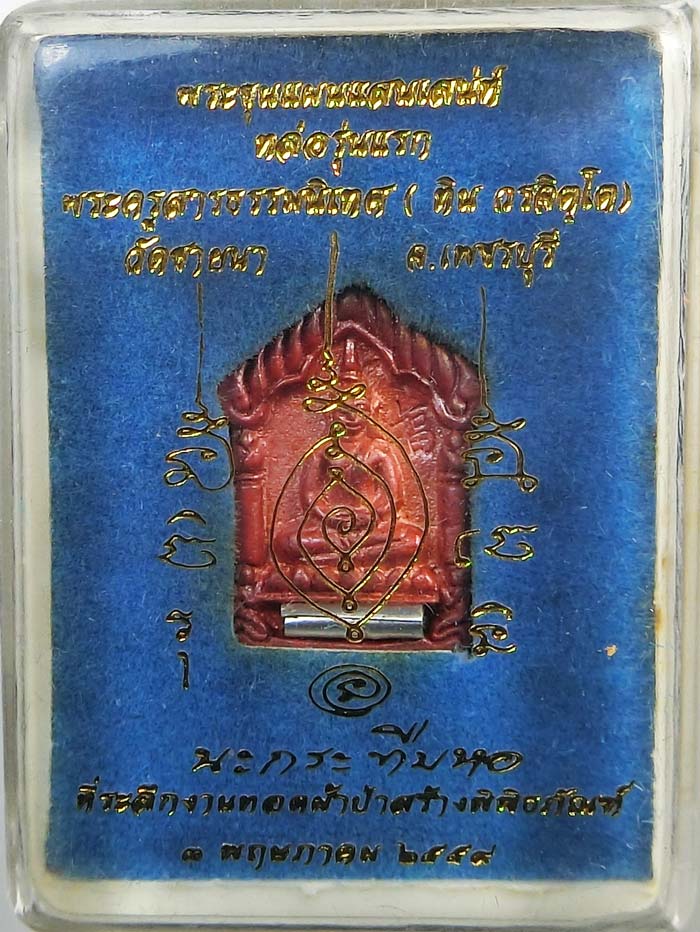 พระขุนแผนแสนเสน่ห์
หล่อรุ่นแรก
พระครูสารธรรมนิเทศ ( ทิน
วัดชายนา จ.เพชรบุรี
นะกระทืบหอ
ที่ระลึกงานทอดผ้าป่าสร้างพิพิธภัณฑ์
๑ พฤษภาคม ๒๕๕๙